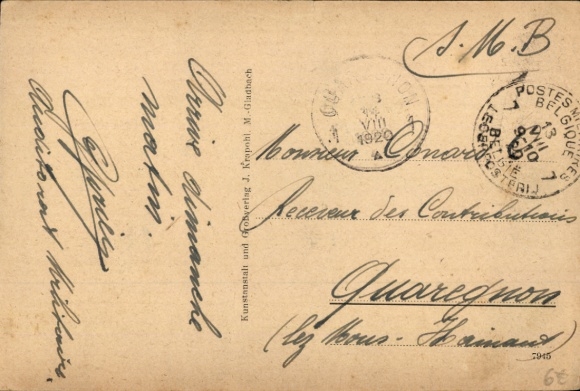 S.M.B
Arrive dimanche
matin.
Auditorat Militaire.
Kunstanstalt und Großverlag J. Krapohl, M.-Gladbach
VIII
1920
POSTES MILITAIRES
BELGIQUE 7
13
VIII
10
1920
7 BELGIE
LEGERPOSTERIJ
Monsieur Conard
Receveur des Contributions
Quaregnon
(lez Mons - Hainaut)
7945
6€